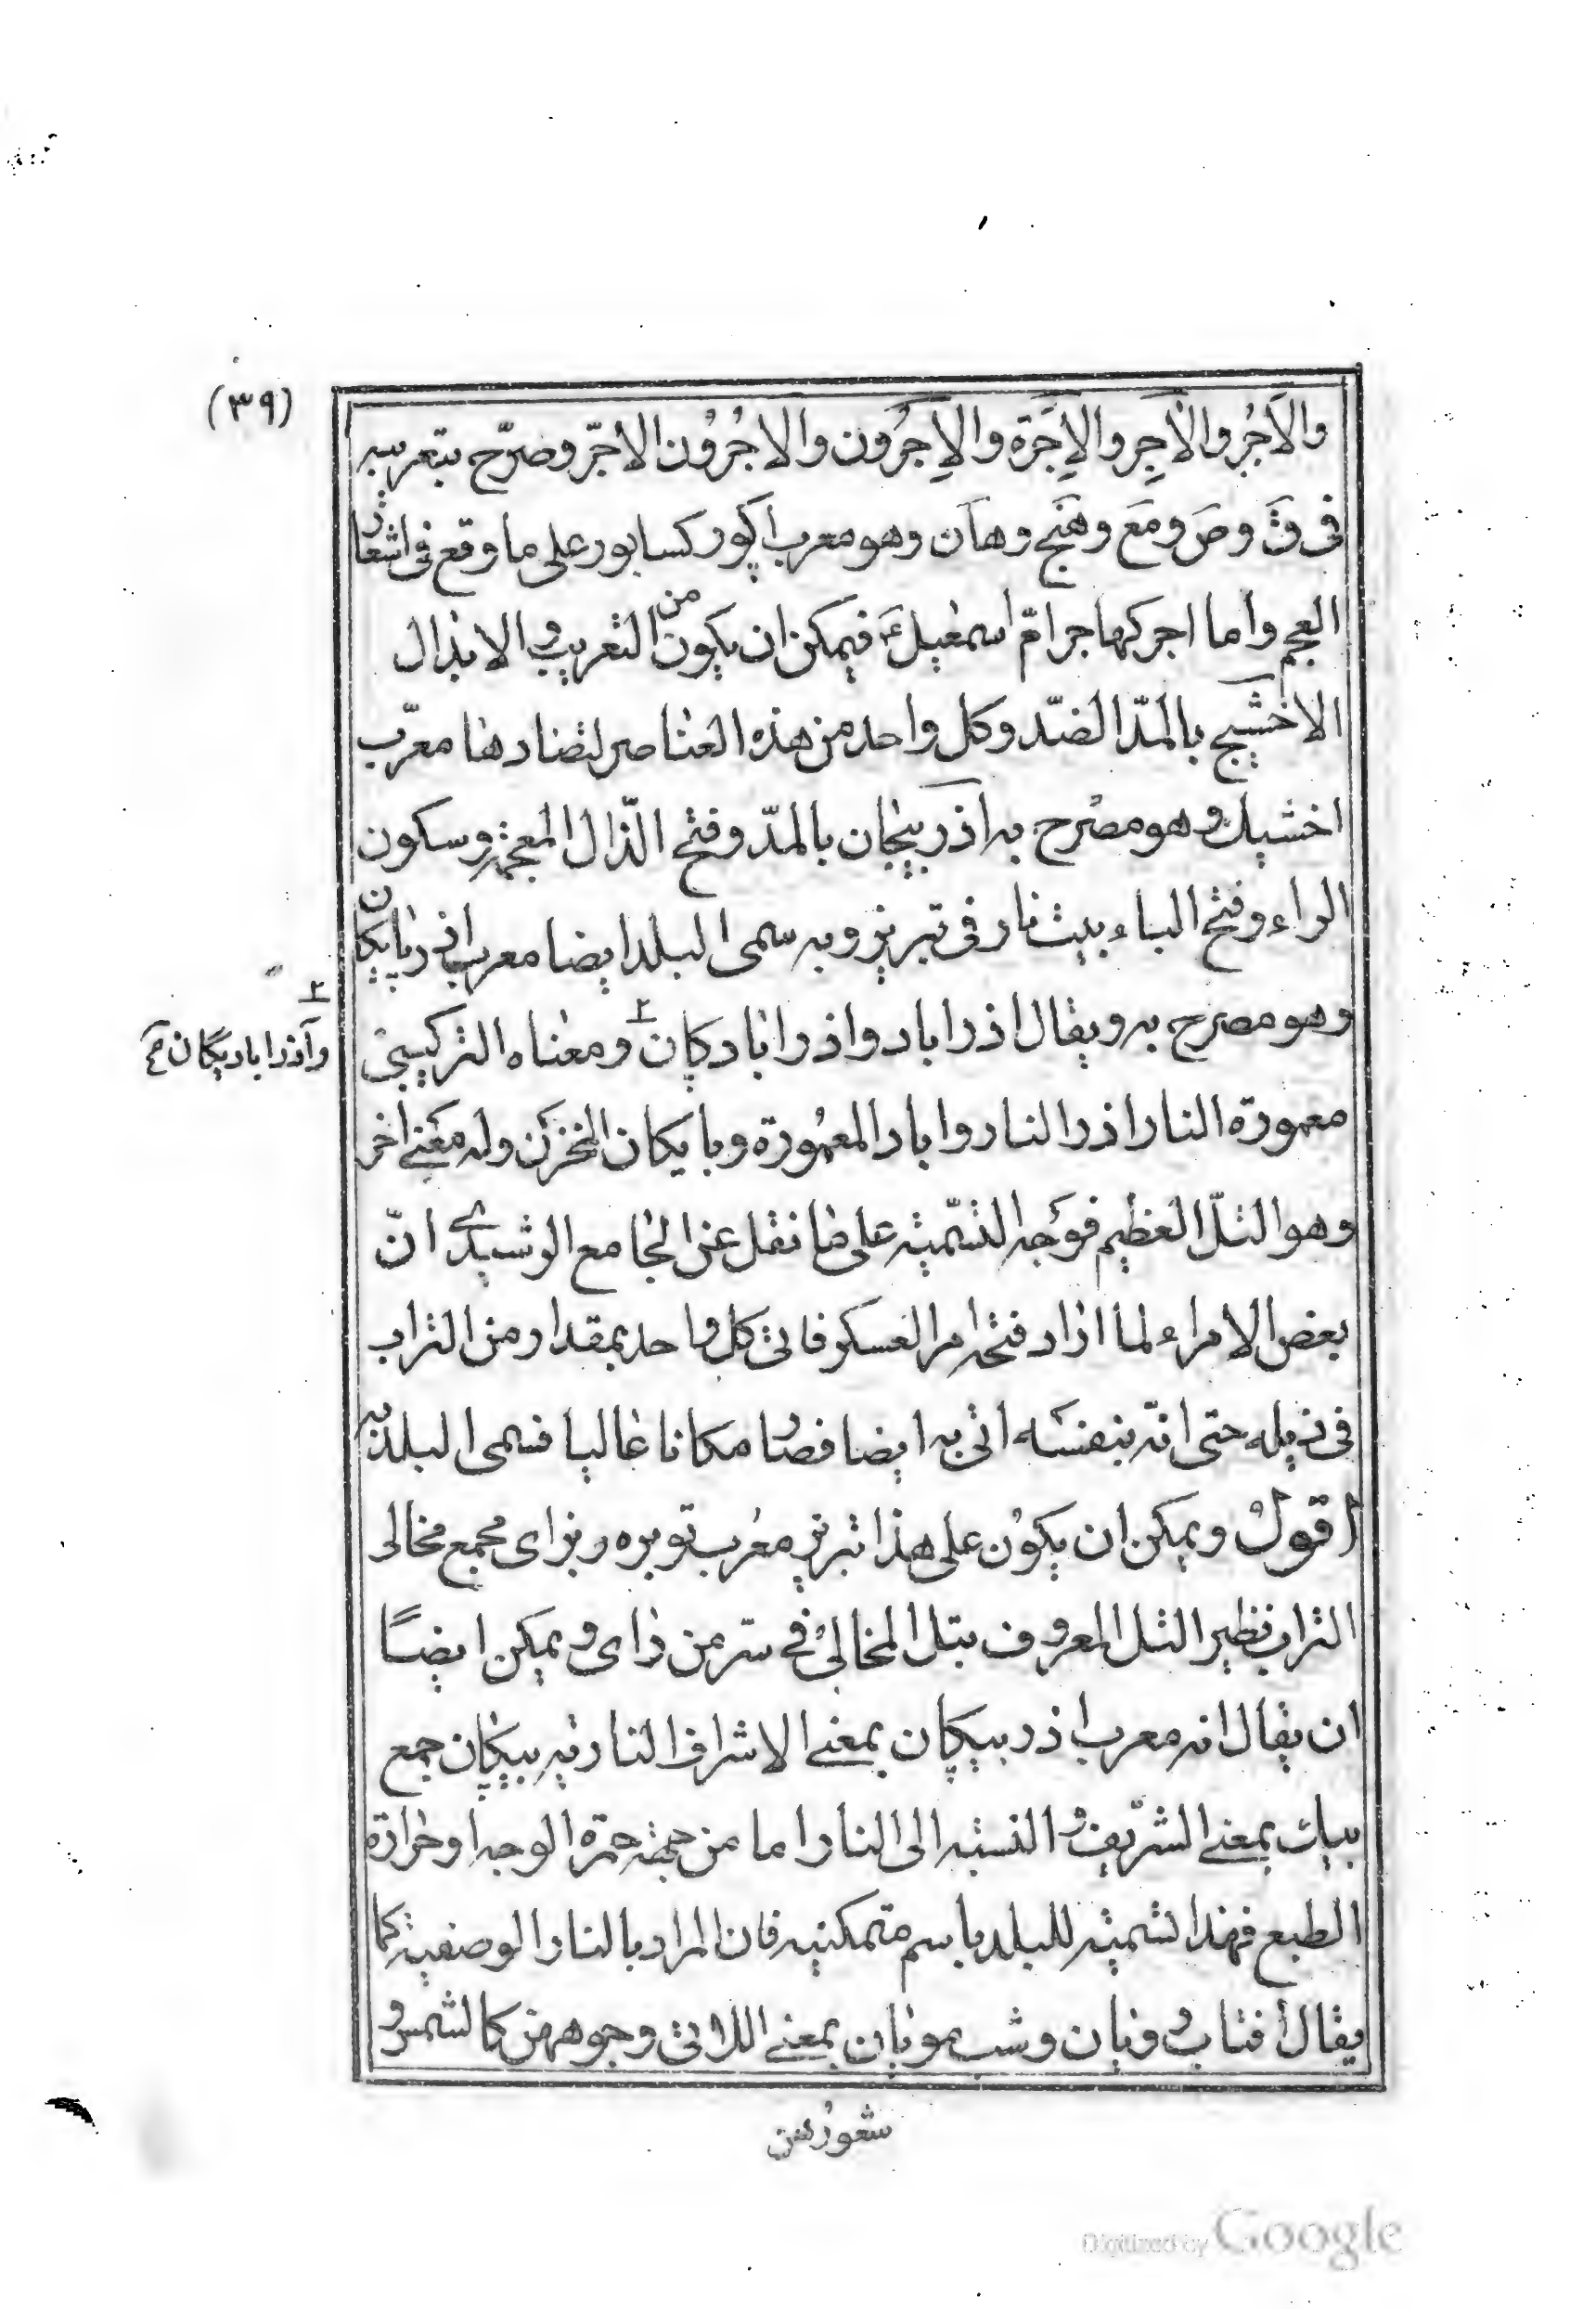 (٣٩)
والاَجُر والاٰجِر والاِجَرّة والاِجَرُون والاٰجُرُون الاجرّ وصرّح بتعريبه
فى قَ و صَ ومَع وهَنج وهاَن وهو معرب اكور كسابور على ما وقع فى اشعار
العجم واما اجر كهاجر امّ اسمعيلَ عَ فيمكن ان يكون من التعريب والابدال
الآخشيج بالمدّ الضدّ وكل واحد من هذه العناصر لتضادها معرّب
اخشيك وهو مصرح به آذربيجان بالمدّ وفتح الذّال المعجمة وسكون
الراء وفتح الباء بيت نار فى تبريز وبه سمى البلد ايضا معرب اذربايكان
وهو مصرح به ويقال اذراباد واذرابادكان ٢ ومعناه التركيبى
٢
وآذراباديگان صح
معمورة النار اذر النار واباد المعمورة وبايكان المخزن وله معنى اخر
وهو التلّ العظيم فوجه التسمية على ما نقل عن الجامع الرشيدى انّ
بعض الامراء لما اراد فتحه امر العسكر فاتى كل واحد بمقدار من التراب
فى ذيله حتى انّه بنفسه اتى به ايضا فصار مكانا عاليا فسمى البلد به
اقول ويمكن ان يكون على هذا تبريز معرب توبره ريز اى مجمع مخالى
التراب نظير التل المعروف بتل المخالى فى سرّ من راى ويمكن ايضًا
ان يقال انه معرب اذربيبكان بمعنى الاشراف النارية بيبكان جمع
بيبك بمعنى الشريف والنسبة الى النار اما من جهة حمرة الوجه او حرارة
الطبع فهذا تسمية للبلد باسم متمكنيه فان المراد بالنار الوصفية كما
يقال أفتاب رويان وشب مويان بمعنى اللاتى وجوههن كالشمس و
شعورهن
Digitized by Google